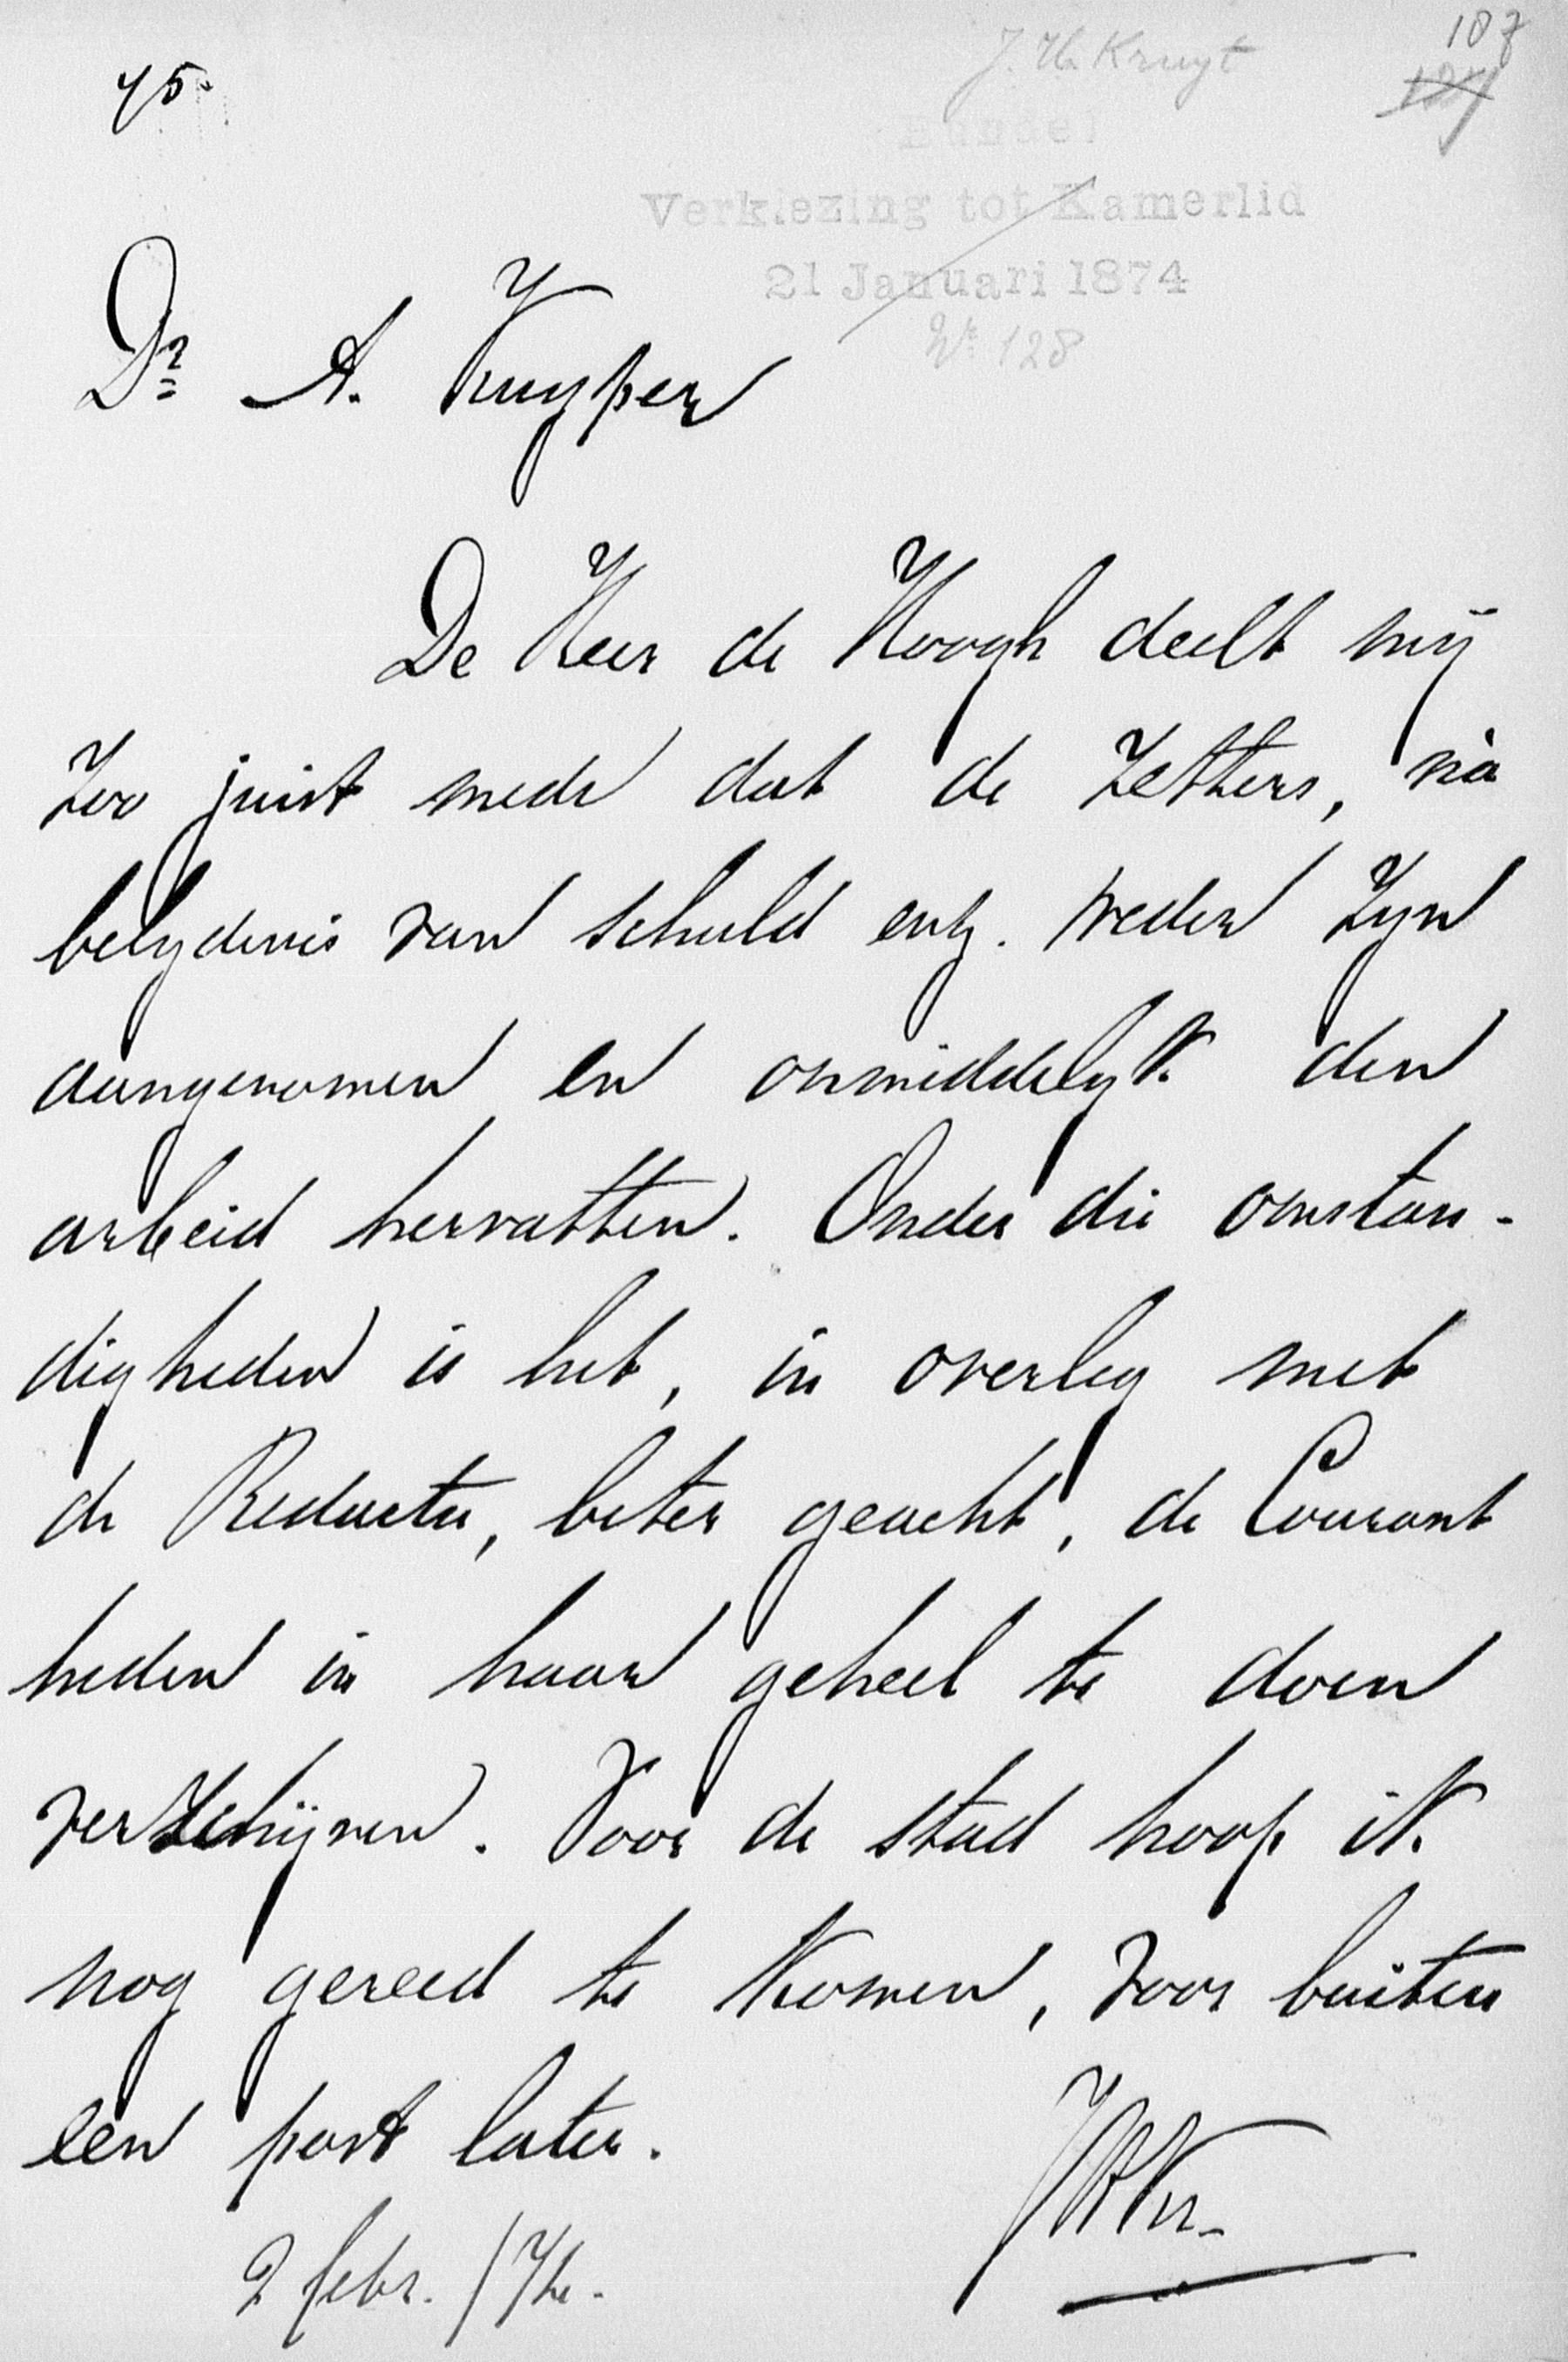 75.
J. H. Kruyt
107
127
Bundel
Verkiezing tot Kamerlid
21 Januari 1874
Nr. 128
Dr A. Kuyper
De Heer de Hoogh deelt mij
zoo juist mede dat de zetters, nà
belydenis van schuld enz. weder zyn
aangenomen en onmiddelyk den
arbeid hervatten. Onder die omstan-
digheden is het, in overleg met
de Redactie, beter geacht, de Courant
heden in haar geheel te doen
verschijnen. Voor de stad hoop ik
nog gereed te komen, voor buiten
een post later.
2 febr. /74.